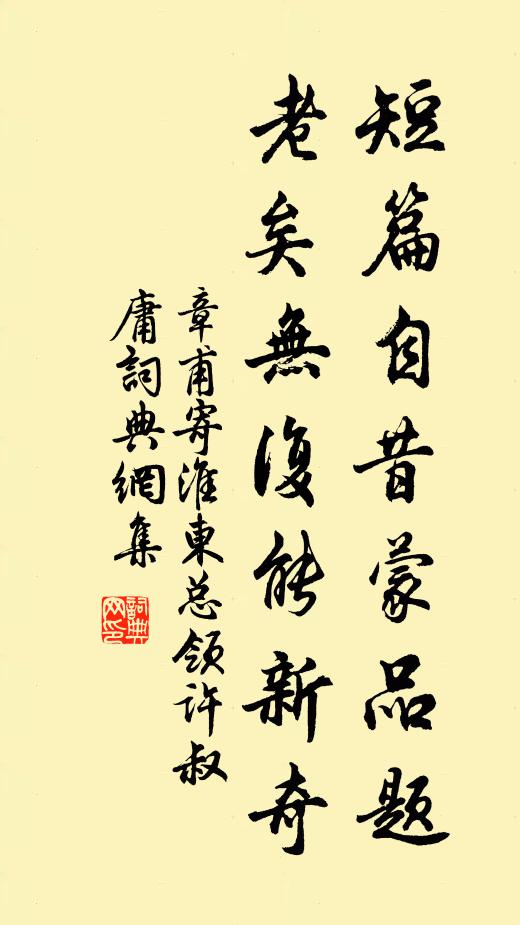 短篇自昔蒙品题
老矣無復能新奇
章甫寄淮東总领许叔
庸詞典網集
詞典网印